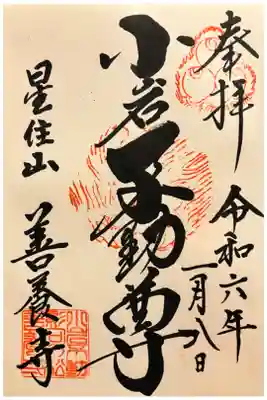 奉拝
令和六年
一月八日
小岩不動尊
星住山
善養寺